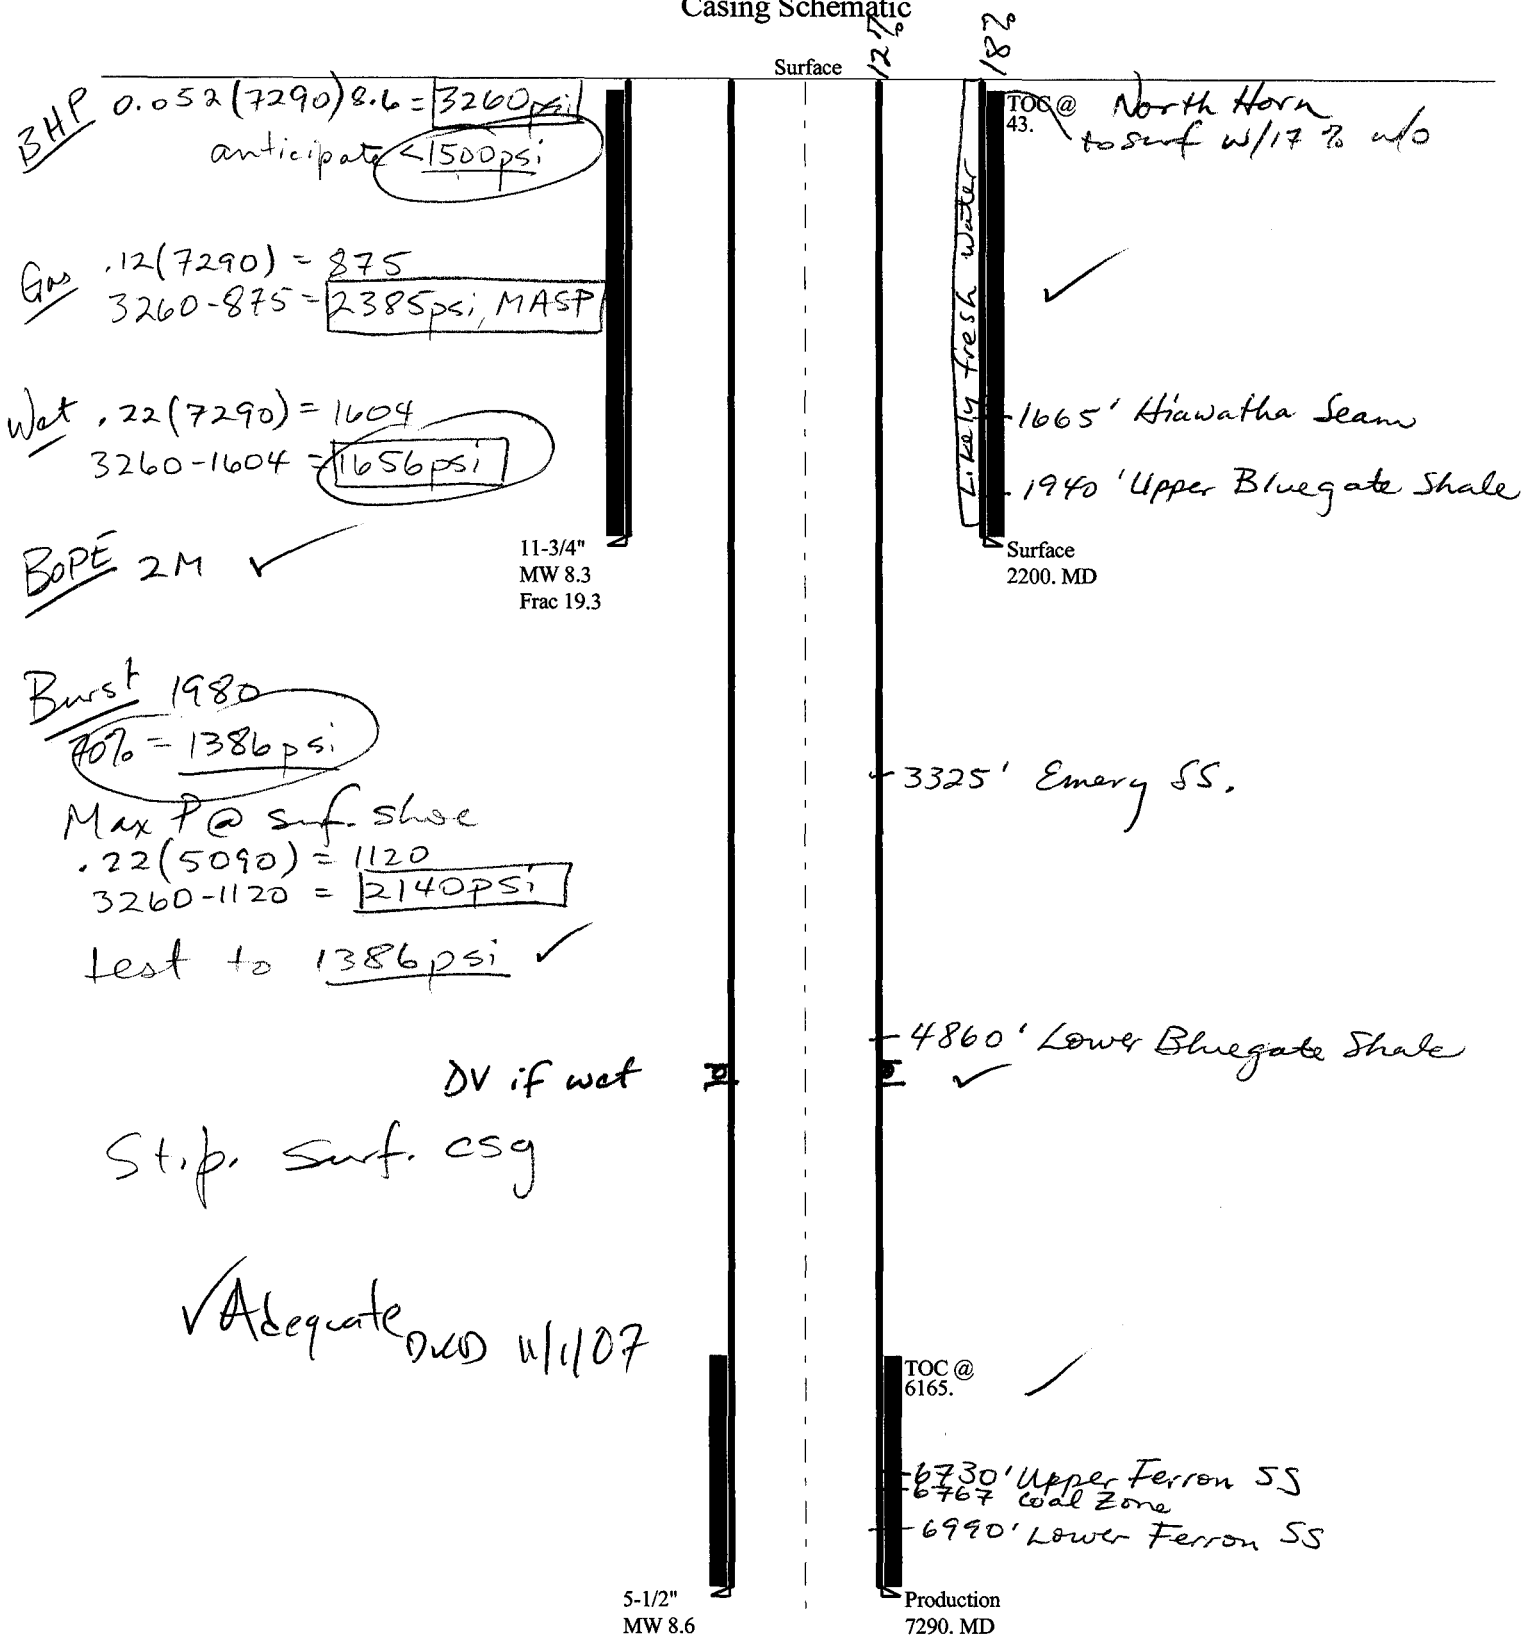 Casing Schematic
12%
18%
Surface
BHP 0.052(7290)8.6 = 3260psi
anticipate <1500psi
Gas .12(7290) = 875
3260-875 = 2385psi, MASP
Wet .22(7290) = 1604
3260-1604 = 1656psi
BOPE 2M ✓
11-3/4"
MW 8.3
Frac 19.3
Burst 1980
70% = 1386psi
Max P @ surf. shoe
.22(5090) = 1120
3260-1120 = 2140psi
test to 1386psi ✓
DV if wet
Stip. surf. csg
✓ Adequate
DKD 11/1/07
5-1/2"
MW 8.6
TOC @
43.
North Horn
to surf w/17% w/o
✓
Likely fresh water
1665' Hiawatha Seam
1940' Upper Bluegate Shale
Surface
2200. MD
3325' Emery SS.
4860' Lower Bluegate Shale
✓
TOC @
6165.
✓
6730' Upper Ferron SS
6767 Coal Zone
6990' Lower Ferron SS
Production
7290. MD